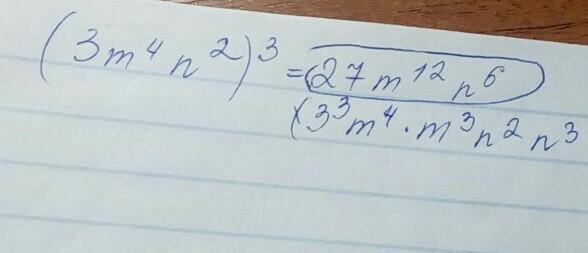 (3m⁴n²)³ = 27m¹²n⁶
(3³m⁴·m³n²n³